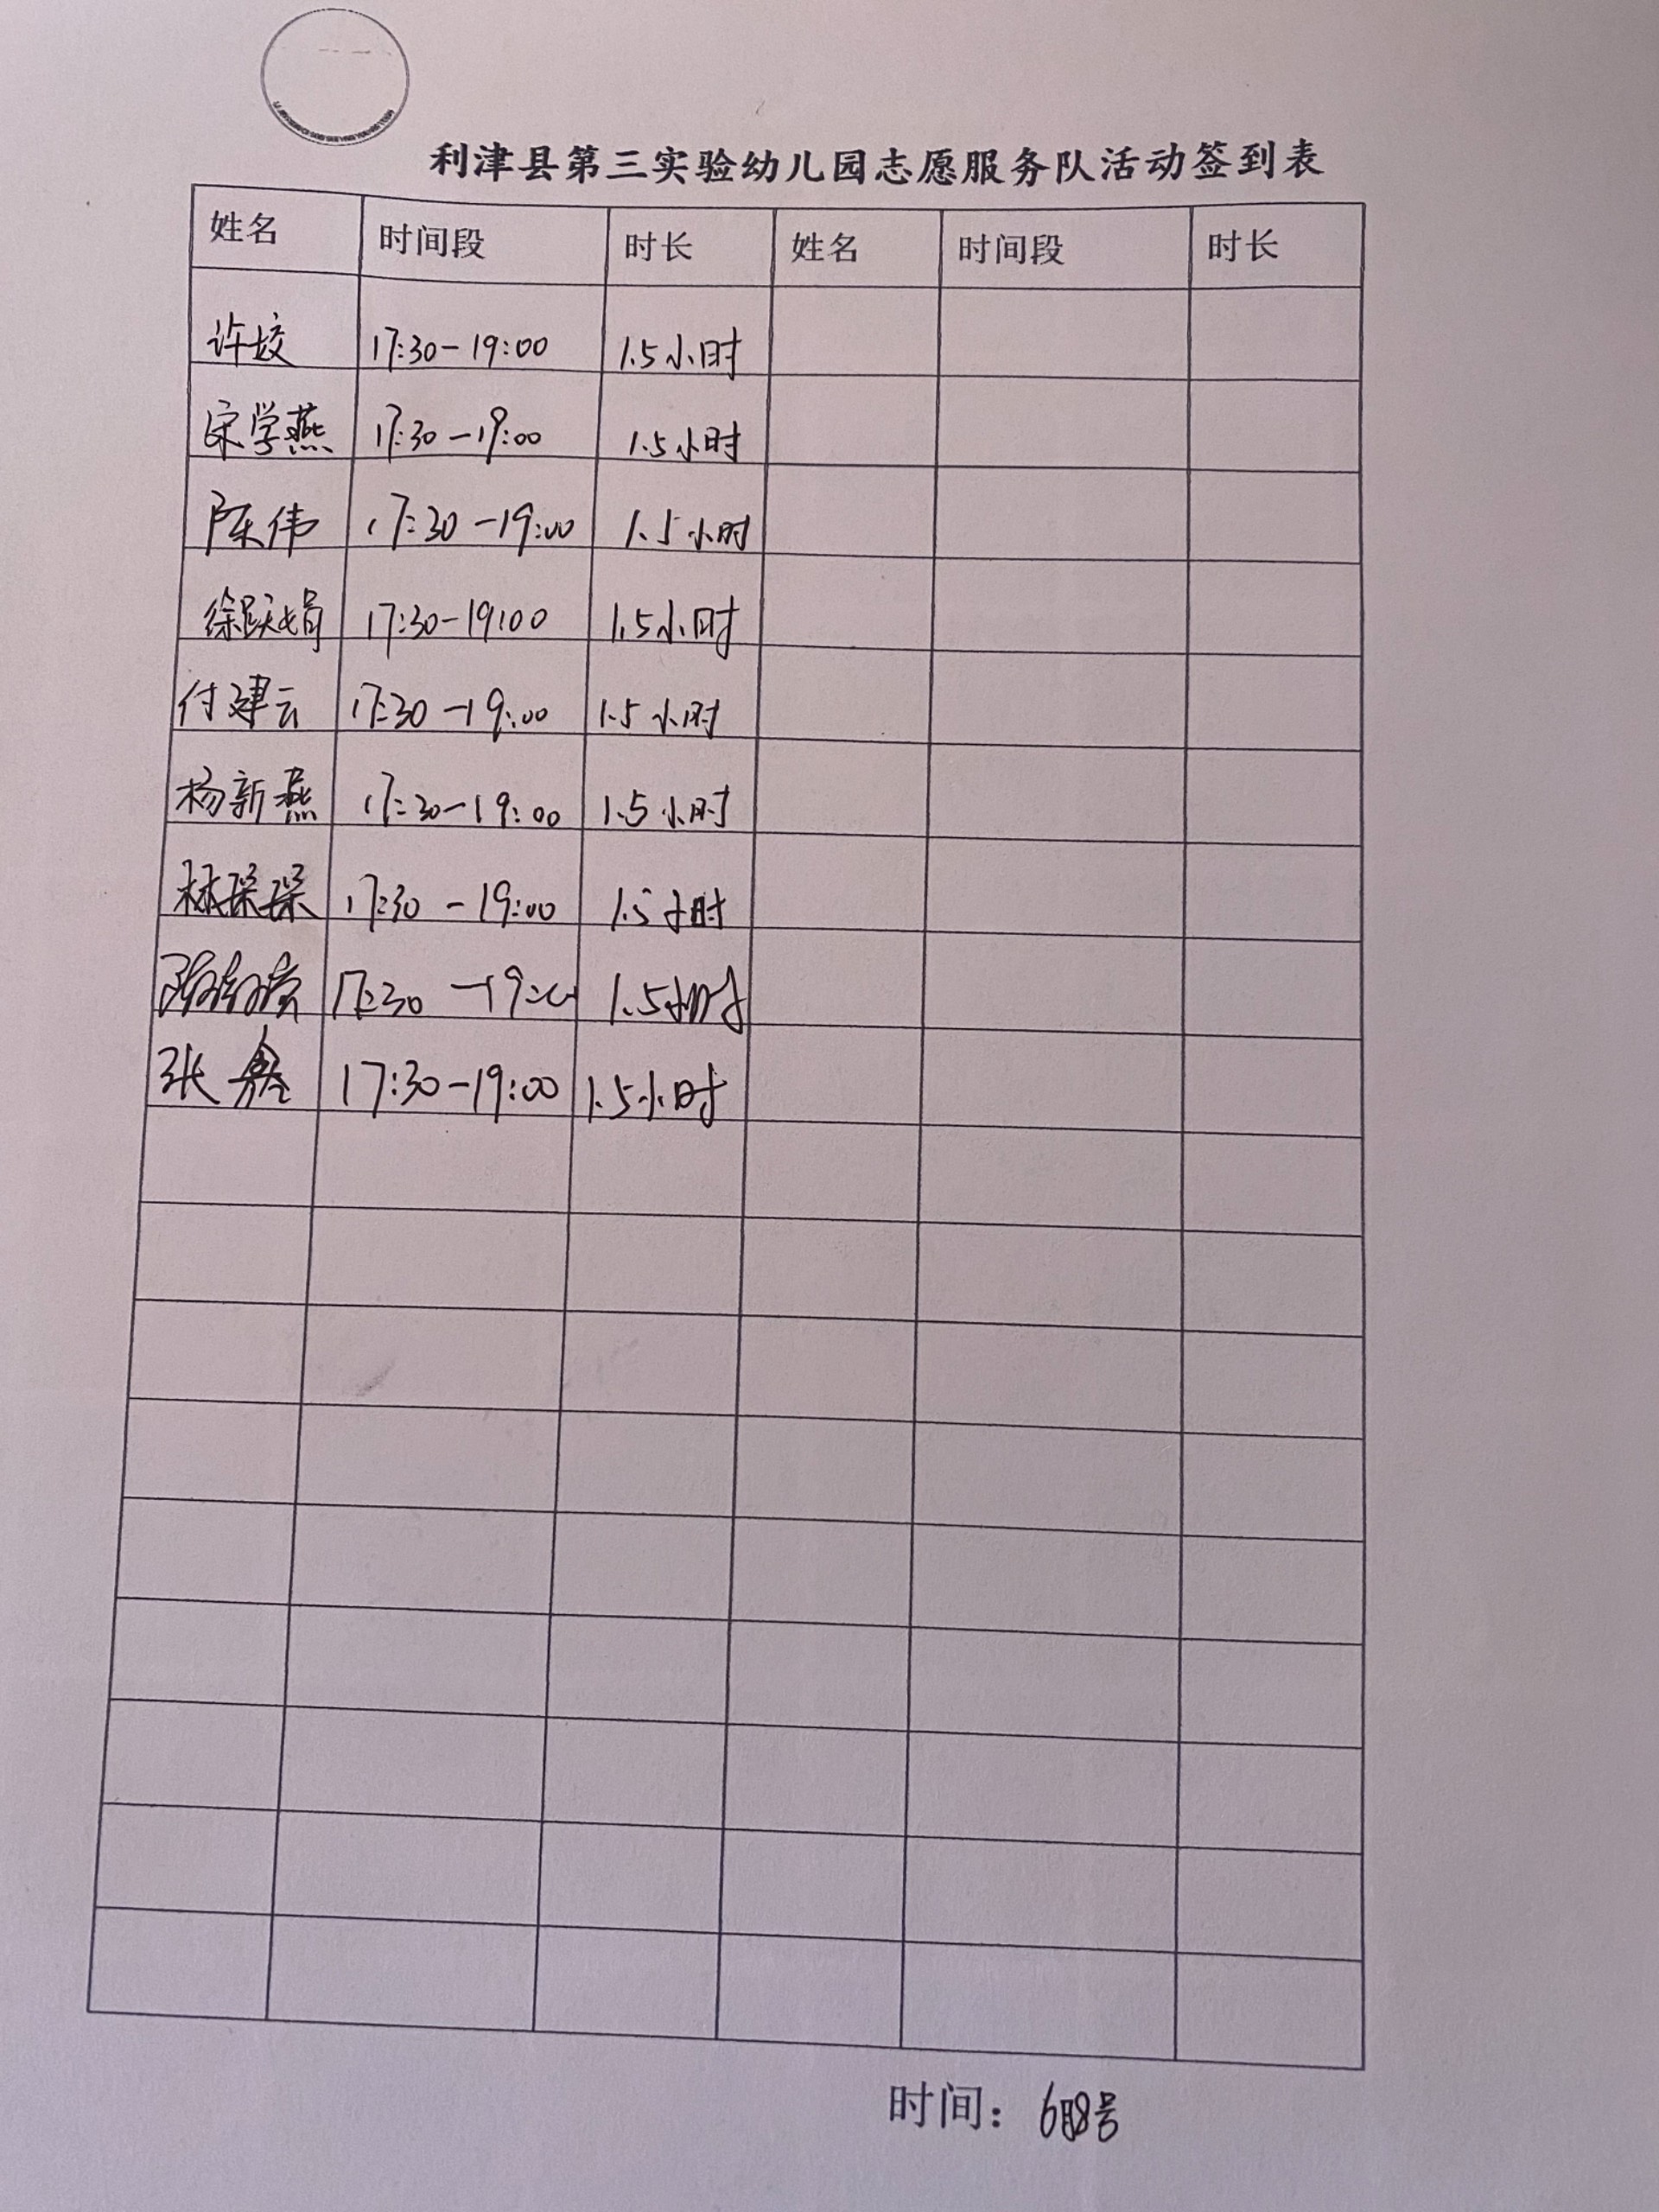 利津县第三实验幼儿园志愿服务队活动签到表
姓名 时间段 时长 姓名 时间段 时长
许姣 17:30-19:00 1.5小时
宋学燕 17:30-19:00 1.5小时
陈伟 17:30-19:00 1.5小时
徐跃娟 17:30-19:00 1.5小时
付建云 17:30-19:00 1.5小时
杨新燕 17:30-19:00 1.5小时
林琛琛 17:30-19:00 1.5小时
17:30-19:00 1.5小时
张 17:30-19:00 1.5小时
时间：6月8号